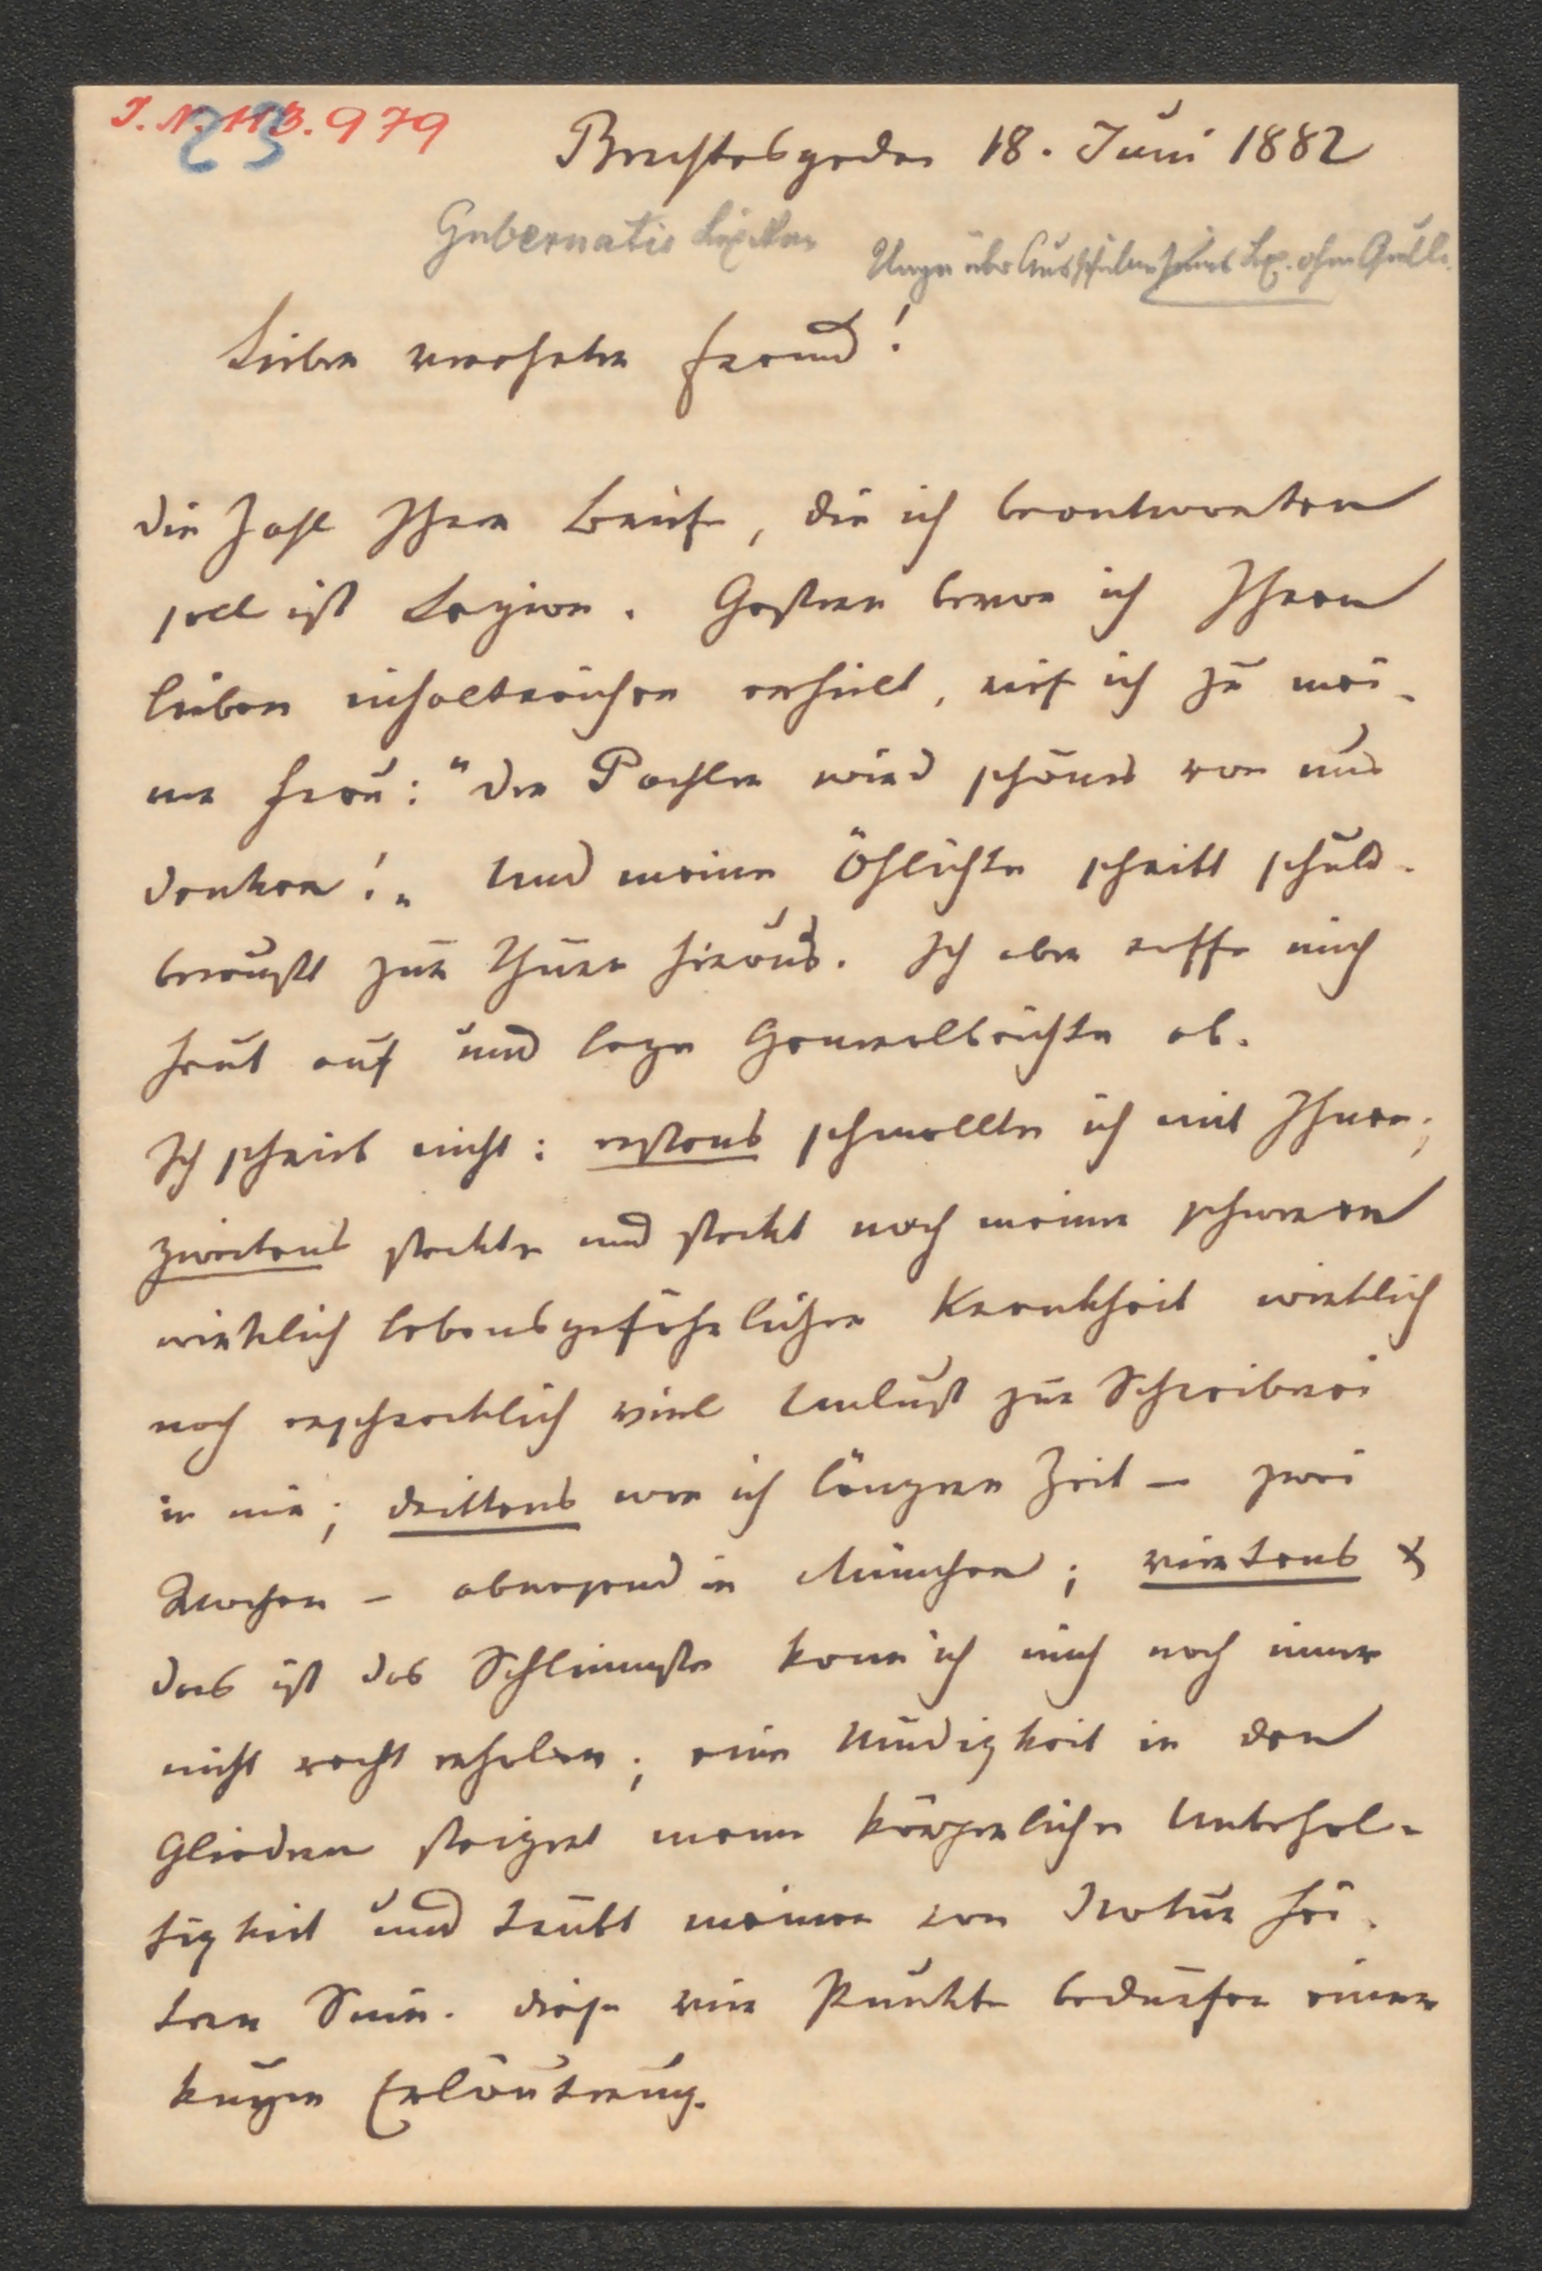 I. N. 113.979
23
Berchtesgaden 18. Juni 1882
Gubernatis Lexikon
Lex. ohne Quelle.
Lieber verehrter Freund!
die Zahl Ihrer Briefe, die ich beantworten
soll ist Legion. Gestern bevor ich Ihren
lieben inhaltreichen erhielt, rief ich zu mei-
ner Frau: "der Pachler wird schönes von uns
denken!" Und meine Ehlichste schritt schuld-
bewußt zur Thüre hinaus. Ich aber raffe mich
heut auf und lege Generalbeichte ab.
Ich schrieb nicht: erstens schmollte ich mit Ihnen;
zweitens steckte und steckt noch meiner schweren
wirklich lebensgefährlichen Krankheit wirklich
noch erschrecklich viel Unlust zur Schreiberei
in mir; drittens war ich längere Zeit – zwei
Wochen – abwesend in München; viertens &
das ist das Schlimmste kann ich mich noch immer
nicht recht erholen; eine Müdigkeit in den
Gliedern steigert meine körperliche Unbehol-
figkeit und trübt meinen von Natur hei-
tern Sinn. diese vier Punkte bedürfen einer
kurzen Erläuterung.